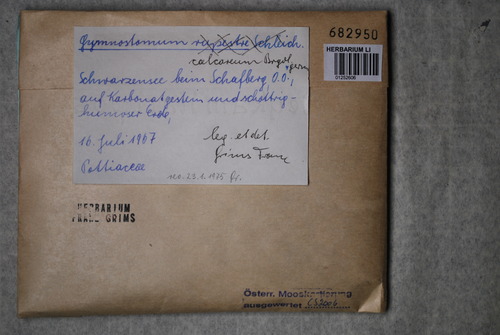 682950
HERBARIUM LI
Gymnostomum rupestre Schleich.
calcareum
Schwarzensee beim Schafberg, O.Ö.;
auf Karbonatgestein und schottrig-
humoser Erde,
16. Juli 1967
leg. et det.
Grims Franz
Pottiaceae
rev. 23.1.1975 Gr.
HERBARIUM
FRANZ GRIMS
Österr. Mooskartierung
ausgewertet